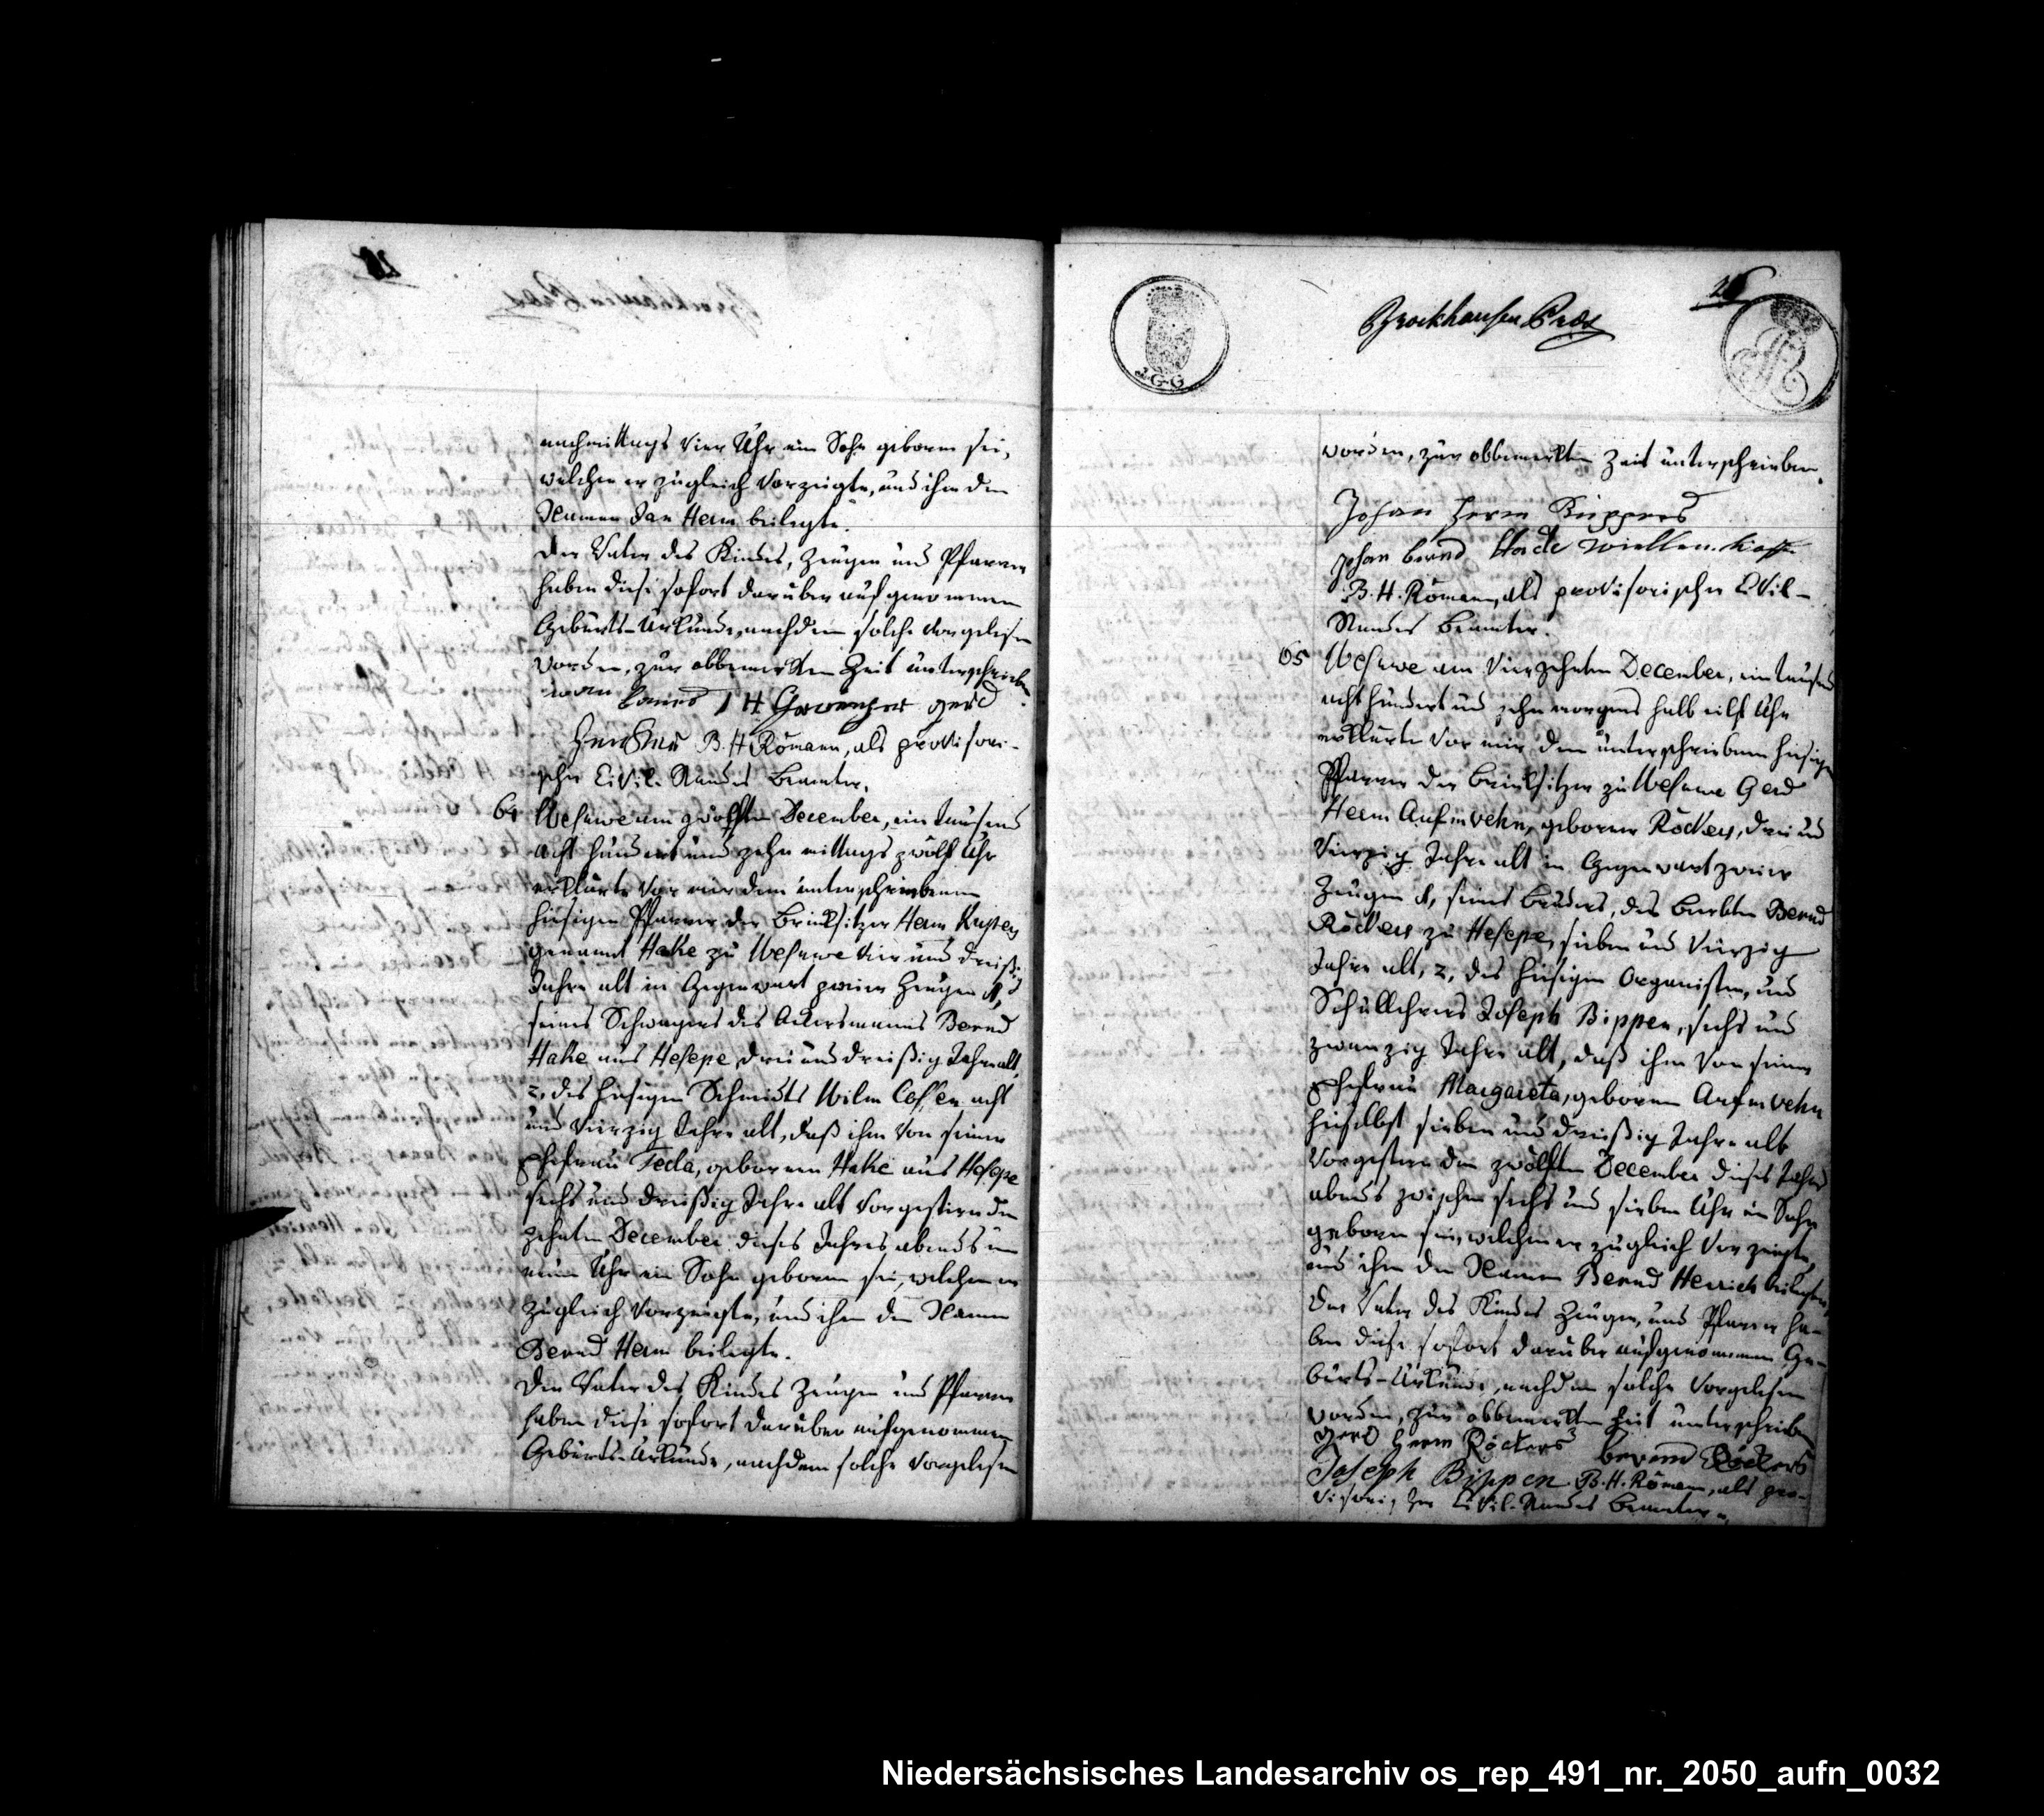 nachmittags vier Uhr ein Sohn geboren sei,
welchen er zugleich vorzeigte, und ihm den
Namen Jan Herm beilegte.
Der Vater des Kindes, Zeugen und Pfarrer
haben diese sofort darüber aufgenommene
Geburts-Urkunde, nachdem solche vorgelesen
worden, zur obbemerkten Zeit unterschrieben.
H gerd
B. H Römann, als provisori-
scher Civil-Standes Beamter.
64 Wesuwe am zwölften December, ein tausend
acht hundert und zehn mittags zwölf Uhr
erklärte vor mir dem unterschriebenen
hiesigen Pfarrer der Brinksitzer Herm
genannt Hake zu Wesuwe vier und dreißig
Jahre alt in Gegenwart zweier Zeugen 1,
seines Schwagers des Ackersmanns Bernd
Hake aus Hesepe drei und dreißig Jahre alt,
2, des hiesigen Schmidts Wilm acht
und vierzig Jahre alt, daß ihm von seiner
Ehefrau Tecla, geboren Hake aus Hesepe
sechs und dreißig Jahre alt vorgestern den
zehnten December dieses Jahres abends um
neun Uhr ein Sohn geboren sei, welchen er
zugleich vorzeigte, und ihm den Namen
Bernd Herm beilegte.
Der Vater des Kindes Zeugen und Pfarrer
haben diese sofort darüber aufgenommene
Geburts-Urkunde, nachdem solche vorgelesen
Brockhausen Präs
J.G.G
worden, zur obbemerkten Zeit unterschrieben.
Johan Herm Küppers
Johan bernd Hacke
B. H. Römann, als provisorischer Civil-
Standes Beamter.
65 Wesuwe am vierzehnten December, ein tausend
acht hundert und zehn morgens halb eilf Uhr
erklärte vor mir dem unterschriebenen hiesigen
Pfarrer der Brinksitzer zu Wesuwe Gerd
Herm Aufmvehn, geborner Röckers, drei und
vierzig Jahre alt in Gegenwart zweier
Zeugen 1, seines Bruders, des Beerbten Bernd
Röckers zu Hesepe, sieben und vierzig
Jahre alt, 2, des hiesigen Organisten, und
Schullehrers Joseph Bippen, sechs und
zwanzig Jahre alt, daß ihm von seiner
Ehefrau Margareta, geboren Aufmvehn
hieselbst sieben und dreißig Jahre alt
vorgestern den zwölften December dieses Jahrs
abends zwischen sechs und sieben Uhr ein Sohn
geboren sei, welchen er zugleich vorzeigte,
und ihm den Namen Bernd Henrich beilegte.
Der Vater des Kindes Zeugen, und Pfarrer ha-
ben diese sofort darüber aufgenommene Ge-
burts-Urkunde, nachdem solche vorgelesen
worden, zur obbemerkten Zeit unterschrieben
gerd Herm Röckers bernd Röckers
Joseph Bippen B. H. Römann, als pro-
visorischer Civil-Standes Beamter.
Niedersächsisches Landesarchiv os_rep_491_nr._2050_aufn_0032